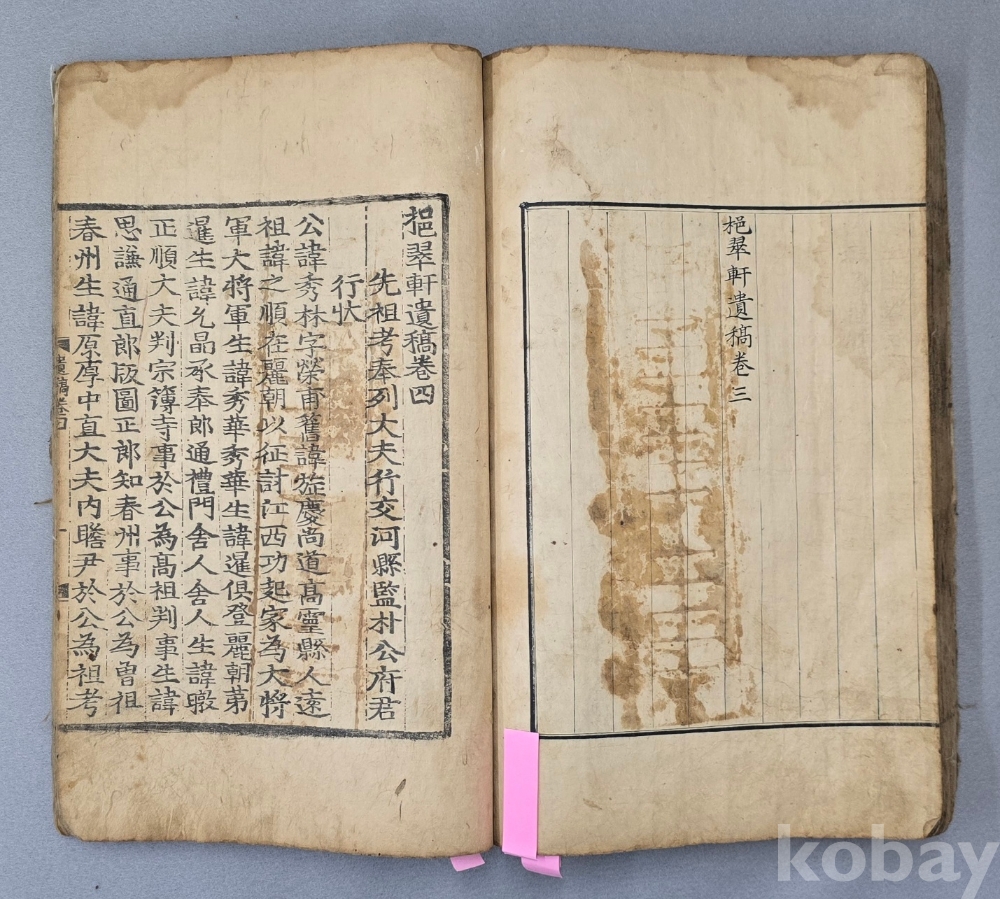 挹翠軒遺稿卷三
挹翠軒遺稿卷四
先祖考奉列大夫行交河縣監朴公府君
行狀
公諱秀林字榮甫舊諱旋慶尙道高靈縣人遠
祖諱之順在麗朝以征討江西功起家為大將
軍大將軍生諱秀華秀華生諱暹俱登麗朝第
暹生諱允晶承奉郎通禮門舍人舍人生諱暾
正順大夫判宗簿寺事於公為高祖判事生諱
思謙通直郎版圖正郎知春州事於公為曽祖
春州生諱原厚中直大夫內瞻尹於公為祖考
遺稿卷四
一
kobay